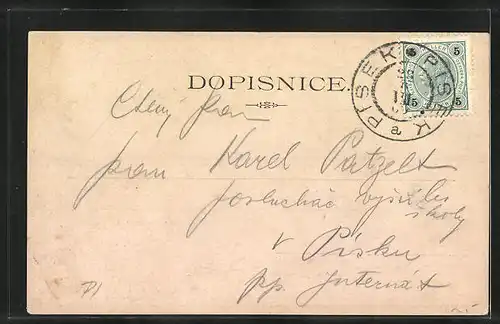 DOPISNICE.
PÍSEK PISEK
a
5 5
5 5
Ctěný pan
pan Karel Patzelt
posluchač vyšší
školy
v Písku
pp. Internát